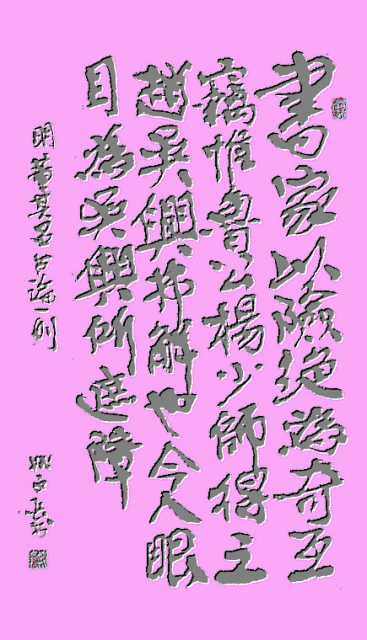 書家以險絕為奇
竅惟魯公楊少師得之
趙吳興弗解也今人眼
目為吳興所遮障
明董其昌書論一則